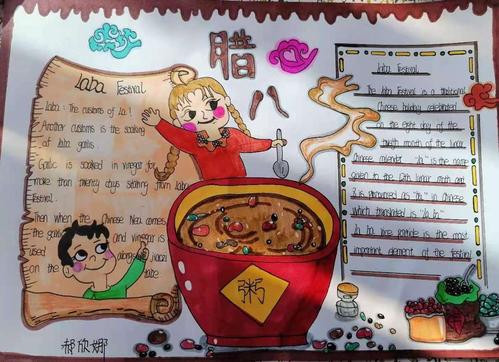 腊八
Laba Festival
Laba: The customs of la!
Another customs is the soaking
of laba garlic.
Garlic is soaked in vinegar for
more than twenty days starting from Laba
Festival.
Then when the Chinese New comes
the garlic and vinegar is
used alongside jiaozi
on the table
Laba Festival
The laba Festival is a traditional
Chinese holiday celebrated
on the eight day of the
month of the lunar
Chinese calender. "la" is the name
given to the 12th lunar month and
is pronounced as "ba" in Chinese
which translated is "la ba".
la ba rice porridge is the most
important element of the festival
粥
郝欣娜